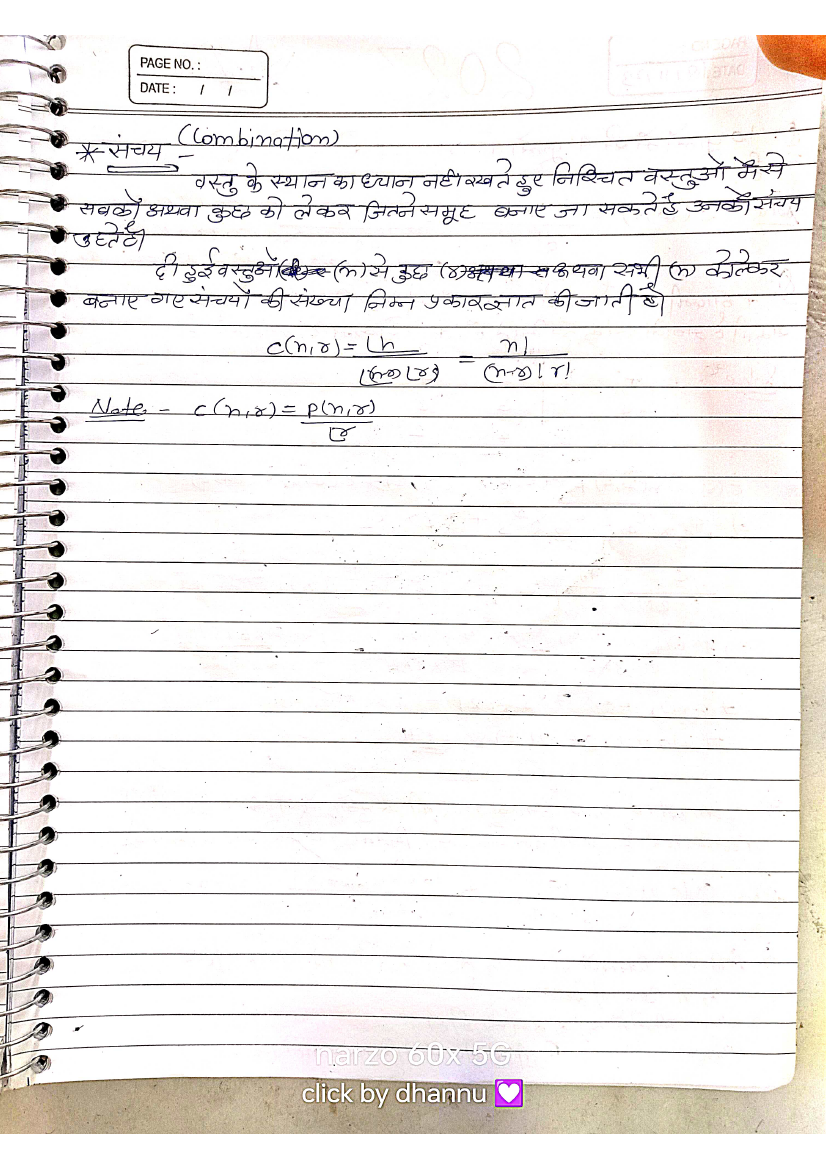 PAGE NO. :
DATE : / /
* संचय (Combination) -
वस्तु के स्थान का ध्यान नहीं रखते हुए निश्चित वस्तुओं मैसे
सवकों अथवा कुछ को लेकर जितने समूह बनाए जा सकते हैं उनको संचय
कहते हैं।
दी हुई वस्तुओं (n) से कुछ (r) अथवा सभी (n) को लेकर
बनाए गए संचयों की संख्या निम्न प्रकार ज्ञात की जाती है।
c(n,r) = ⌊n / ⌊(n-r) ⌊r = n! / (n-r)! r!
Note - c(n,r) = P(n,r) / ⌊r
narzo 60x 5G
click by dhannu 💟